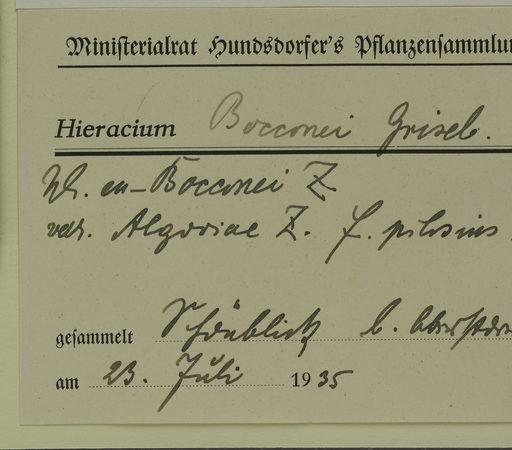 Ministerialrat Hundsdorfer's Pflanzensammlun
Hieracium Bocconei Griseb.
eu-Bocconei Z
var. Algoviae Z. f. pilosius
gesammelt Schönblick b. Oberstdor
am 23. Juli 1935